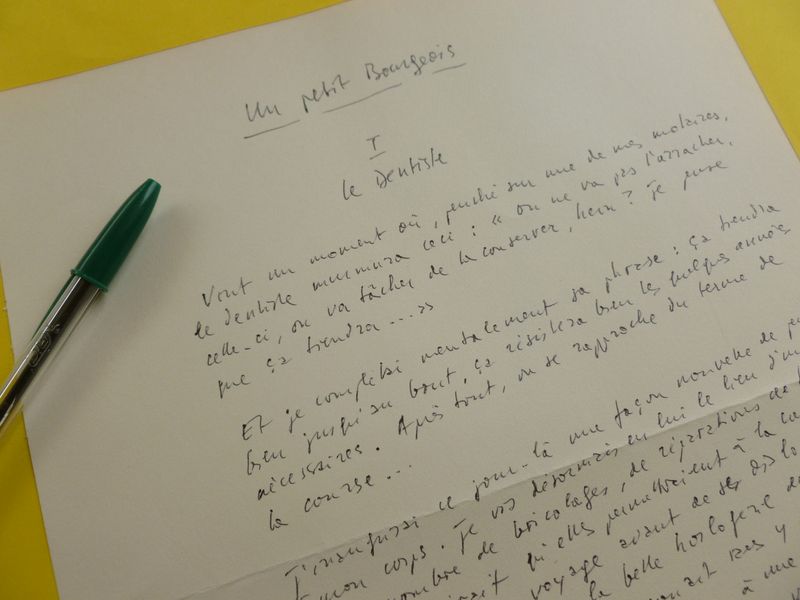 Un petit Bourgeois
I
Le Dentiste
Vint un moment où, penché sur une de mes molaires,
le dentiste murmura ceci : « on ne va pas l'arracher,
celle-ci, on va tâcher de la conserver, hein ? Je pense
que ça tiendra ... »
Et je complétai mentalement sa phrase : ça tiendra
bien jusqu'au bout, ça résistera bien les quelques années
nécessaires. Après tout, on se rapproche du terme de
la course ...
J'inaugurai ce jour-là une façon nouvelle de
mon corps. Je vis désormais en lui le lieu
nombre de bricolages, de réparations de
qu'elles permettraient à la
voyage avant de
la belle horlogerie
y
à une